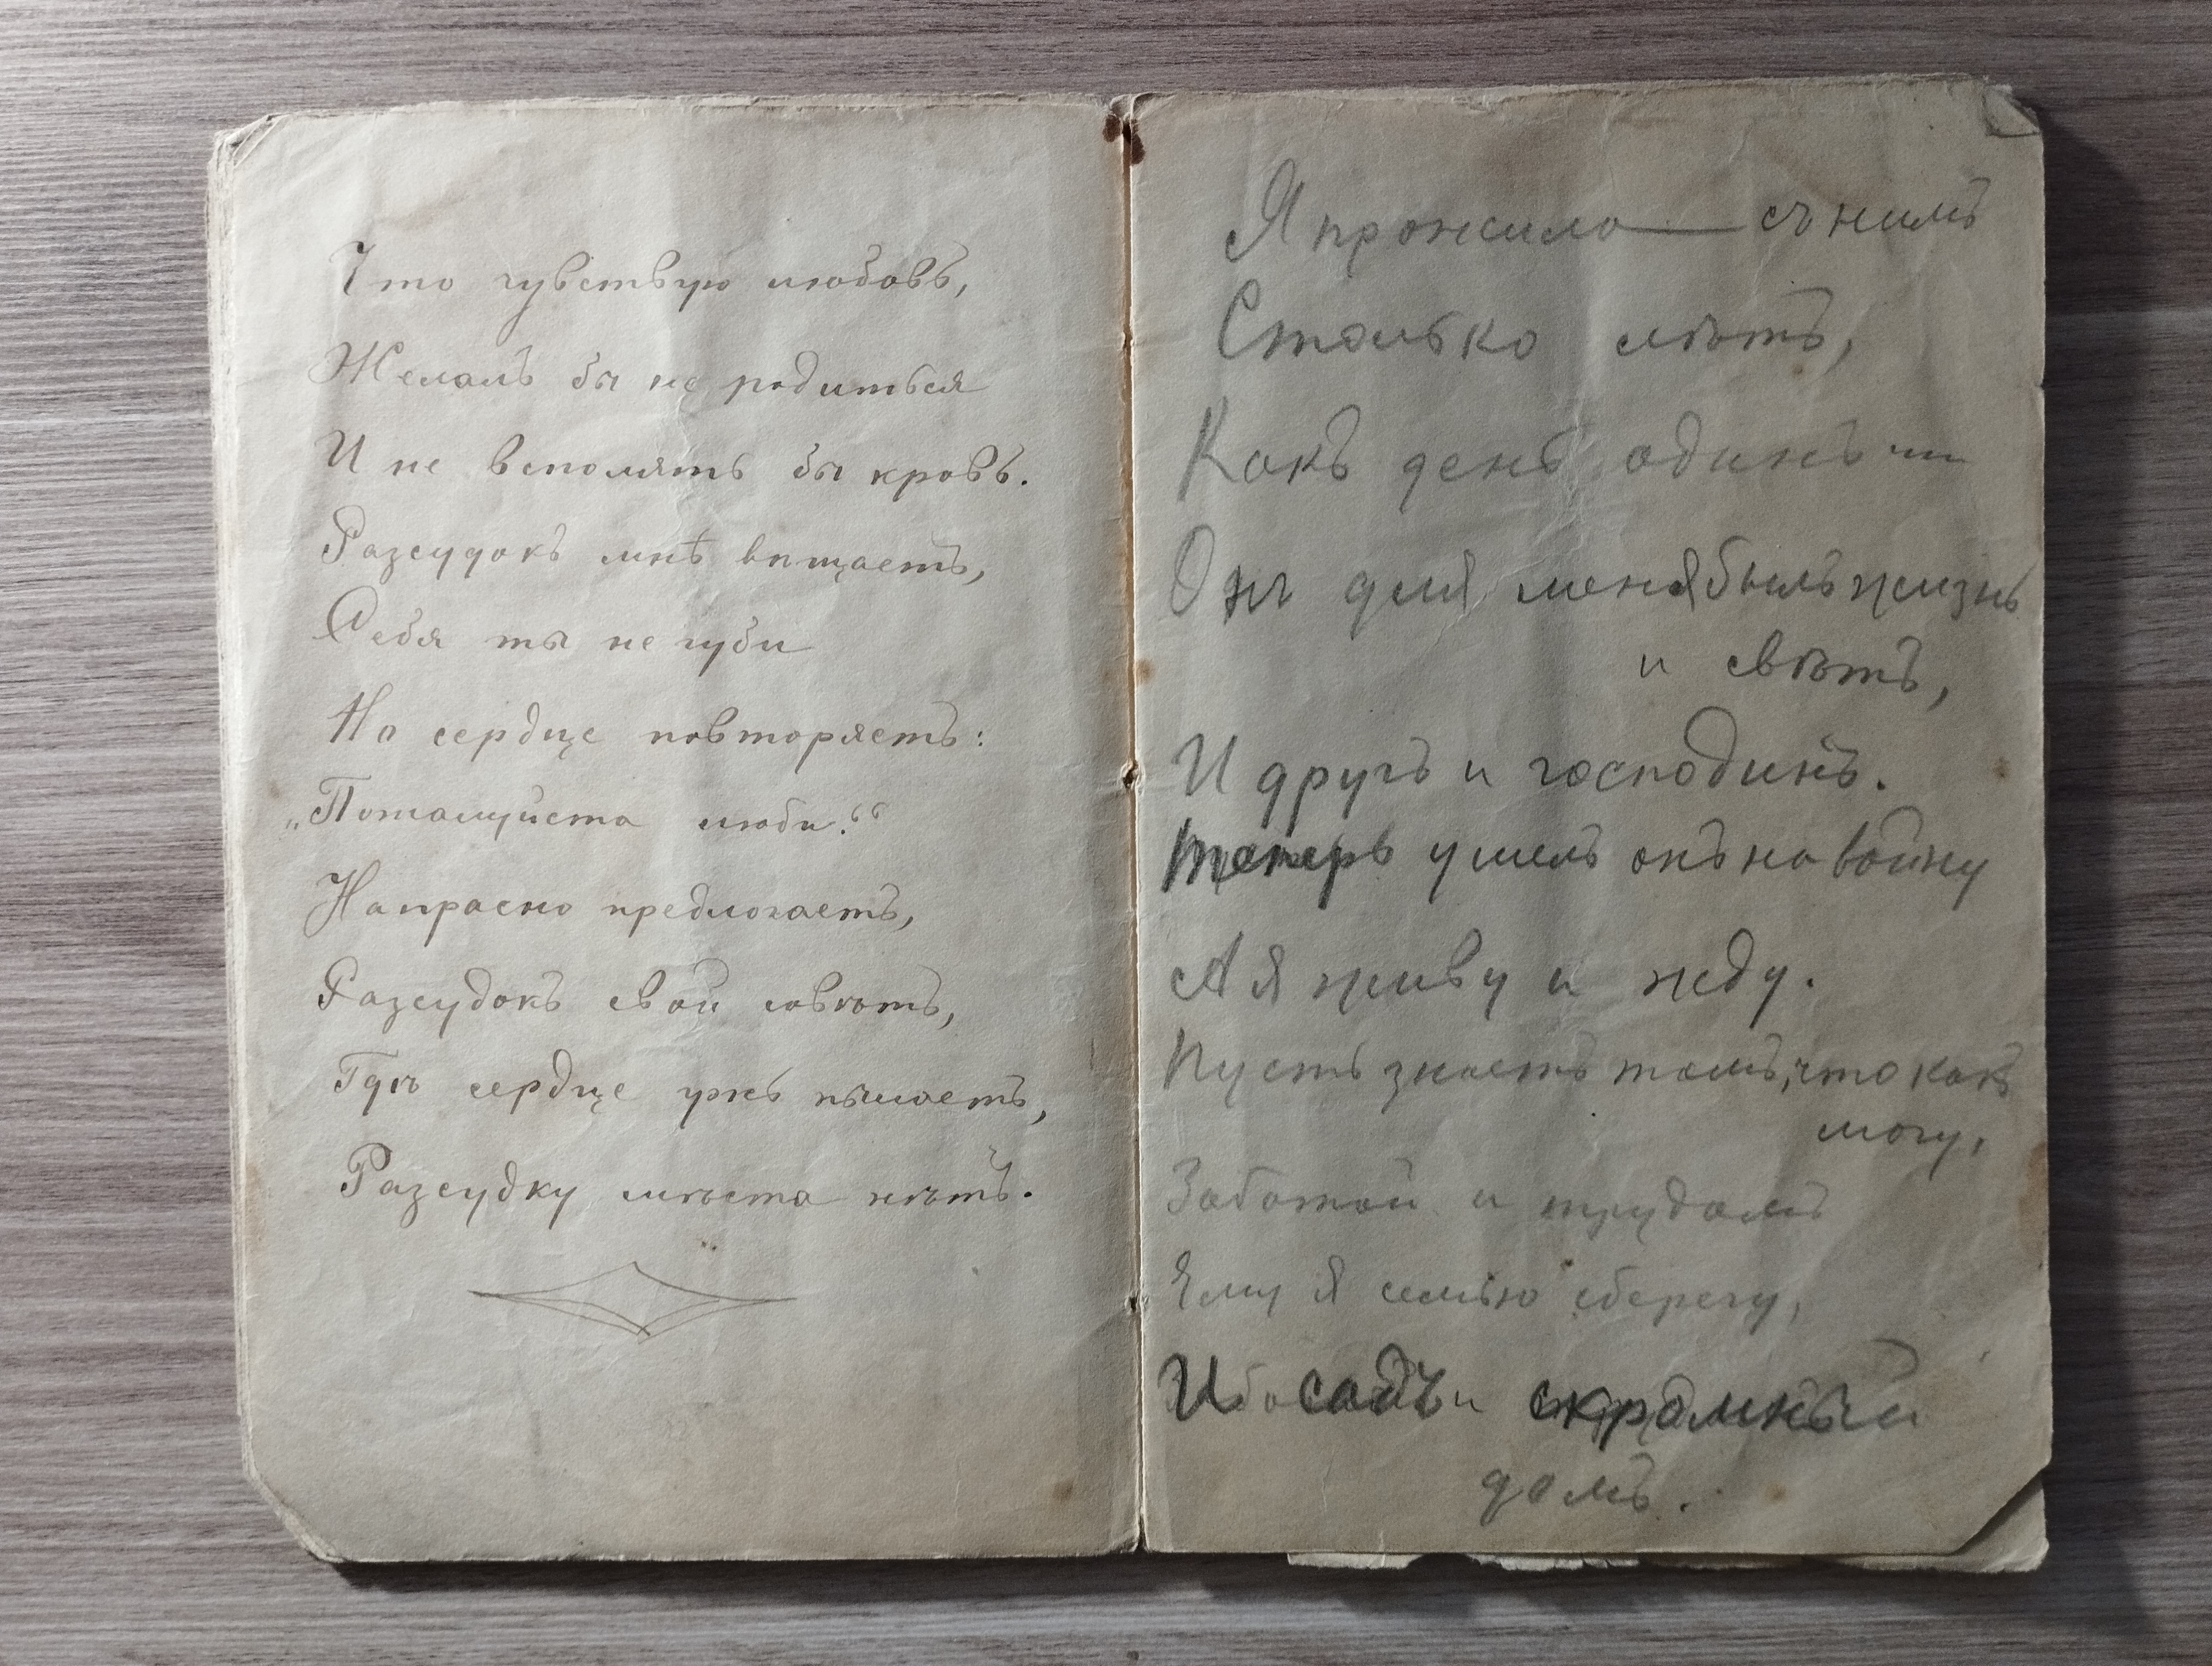 Что чувствую любовь,
Желалъ бы не родиться
И не вспомять бы кровь.
Разсудокъ мнѣ вѣщаетъ,
Себя ты не губи
Но сердце повторяетъ:
„Пожалуйста люби.“
Напрасно предлогаетъ,
Разсудокъ свой совѣтъ,
Гдѣ сердце ужь пылаетъ,
Разсудку мѣста нѣтъ.
Я прожила — съ нимъ
Столько лѣтъ,
Какъ день одинъ
Онъ для меня былъ жизнь
и свѣтъ,
И другъ и господинъ.
Теперь ушелъ онъ на войну
А я живу и жду.
Пусть знаетъ тамъ, что какъ
могу,
Заботой и трудомъ
Ему я семью сберегу,
И садъ и скромный
домъ.